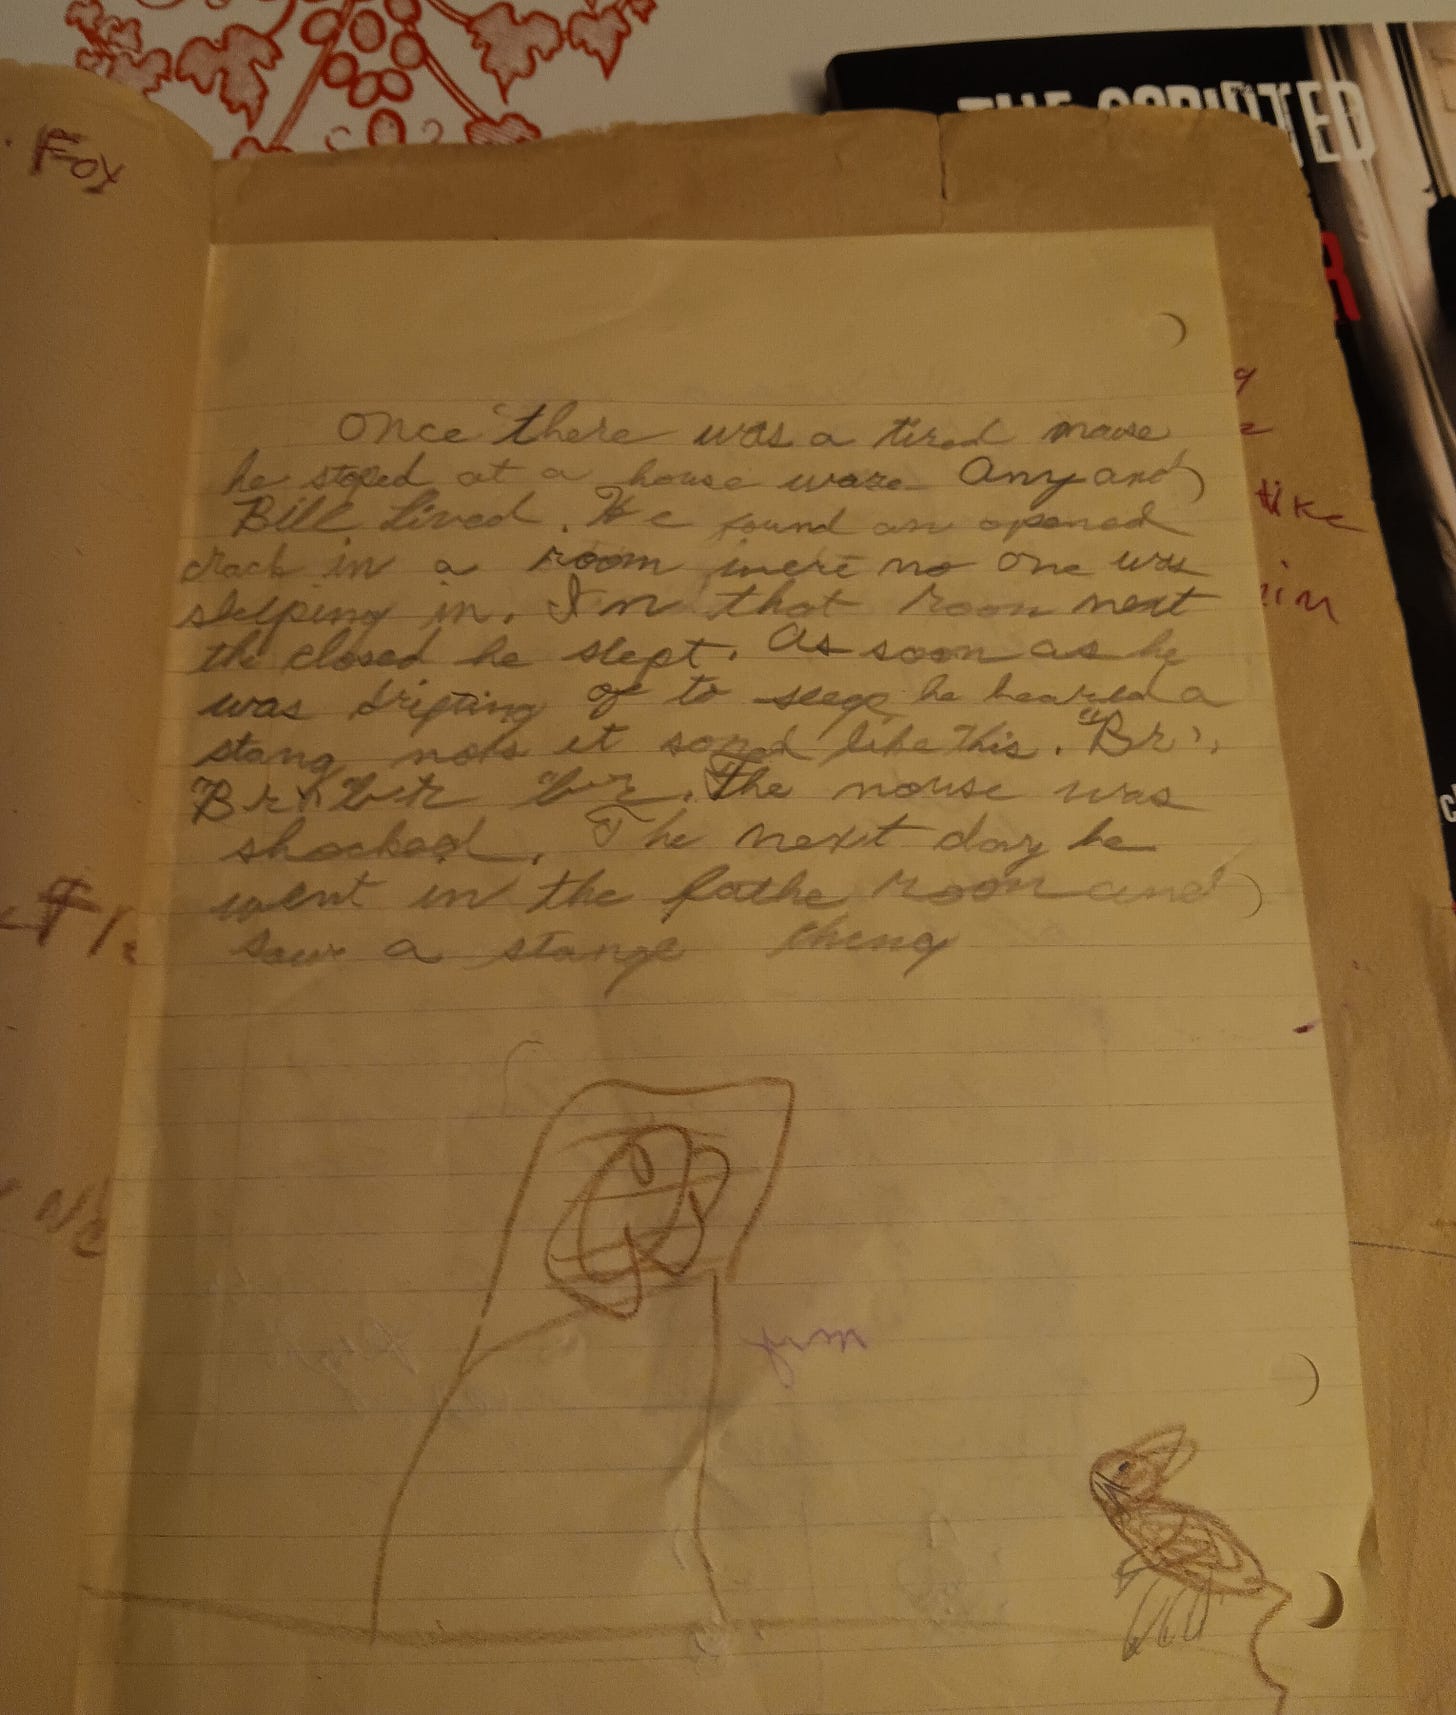 Fox
THE SCRIPTED
R
Once there was a tired mouse
he stoped at a house ware Amy and
Bill Lived. He found an opened
crack in a room were no one was
slelping in. In that room next
the closed he slept. As soon as he
was drifting of to sleep he hearld a
stang nois it sond like this. "Br".
Br" "brr "brr. The mouse was
shocked. The next day he
went in the fathe room and
saw a stange thing
like
him